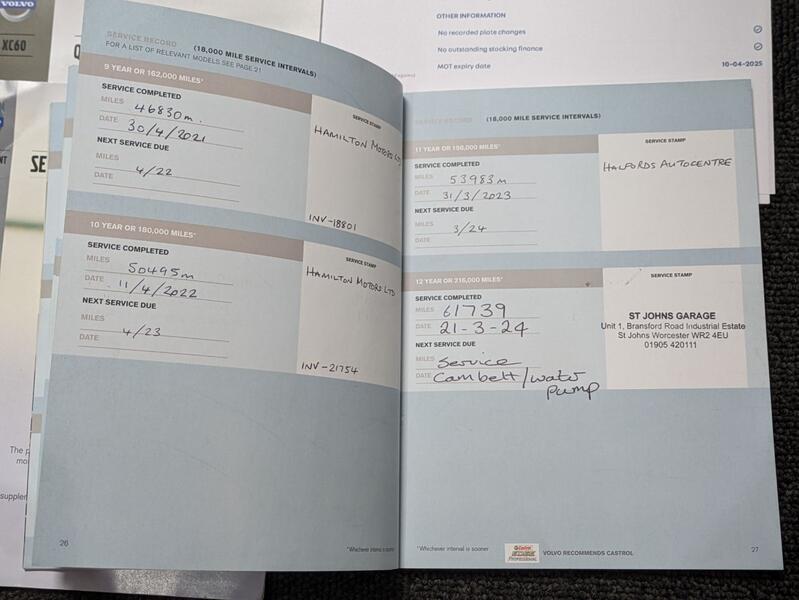 VOLVO
XC60
Q
SE
OTHER INFORMATION
No recorded plate changes
No outstanding stocking finance
MOT expiry date
10-04-2025
SERVICE RECORD (18,000 MILE SERVICE INTERVALS)
FOR A LIST OF RELEVANT MODELS SEE PAGE 21
9 YEAR OR 162,000 MILES*
SERVICE COMPLETED
MILES 46830m.
DATE 30/4/2021
NEXT SERVICE DUE
MILES
4/22
DATE
SERVICE STAMP
HAMILTON MOTORS LTD
INV-18801
10 YEAR OR 180,000 MILES*
SERVICE COMPLETED
MILES 50495m
DATE 11/4/2022
NEXT SERVICE DUE
MILES
4/23
DATE
SERVICE STAMP
HAMILTON MOTORS LTD
INV-21754
26
*Whichever interval is sooner
SERVICE RECORD (18,000 MILE SERVICE INTERVALS)
11 YEAR OR 198,000 MILES*
SERVICE COMPLETED
MILES 53983m
DATE 31/3/2023
NEXT SERVICE DUE
MILES
3/24
DATE
SERVICE STAMP
HALFORDS AUTOCENTRE
12 YEAR OR 216,000 MILES*
SERVICE COMPLETED
MILES 61739
DATE 21-3-24
NEXT SERVICE DUE
MILES Service
DATE Cambelt/water
pump
SERVICE STAMP
ST JOHNS GARAGE
Unit 1, Bransford Road Industrial Estate
St Johns Worcester WR2 4EU
01905 420111
*Whichever interval is sooner
Castrol
EDGE
PROFESSIONAL
VOLVO RECOMMENDS CASTROL
27